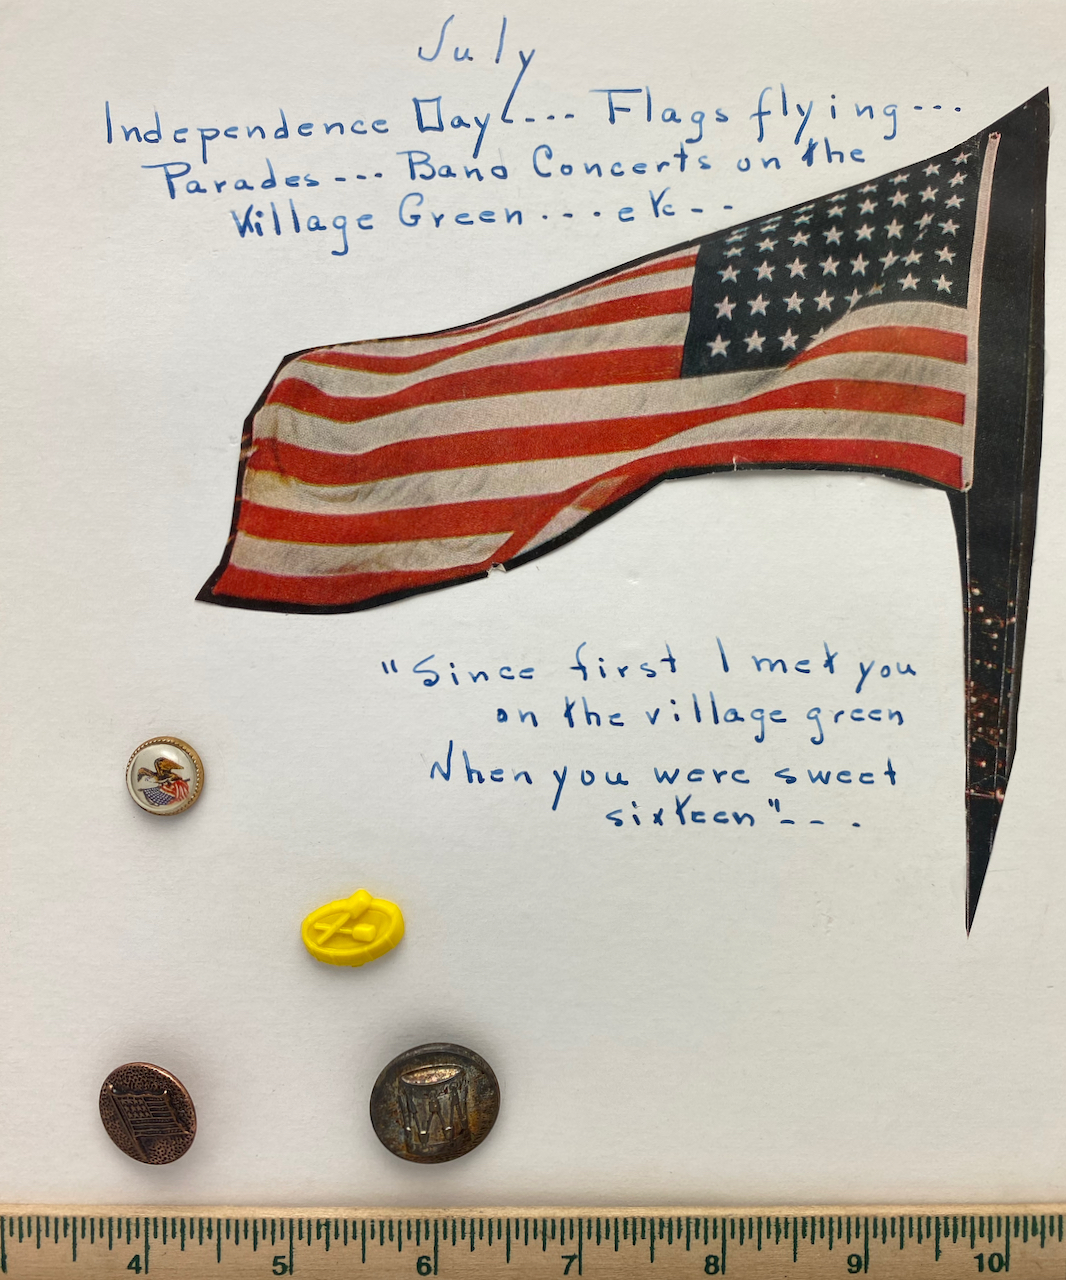 July
Independence Day --- Flags flying ---
Parades --- Band Concerts on the
Village Green - - - etc - -
"Since first I met you
on the village green
When you were sweet
sixteen" - - .
4 5 6 7 8 9 10